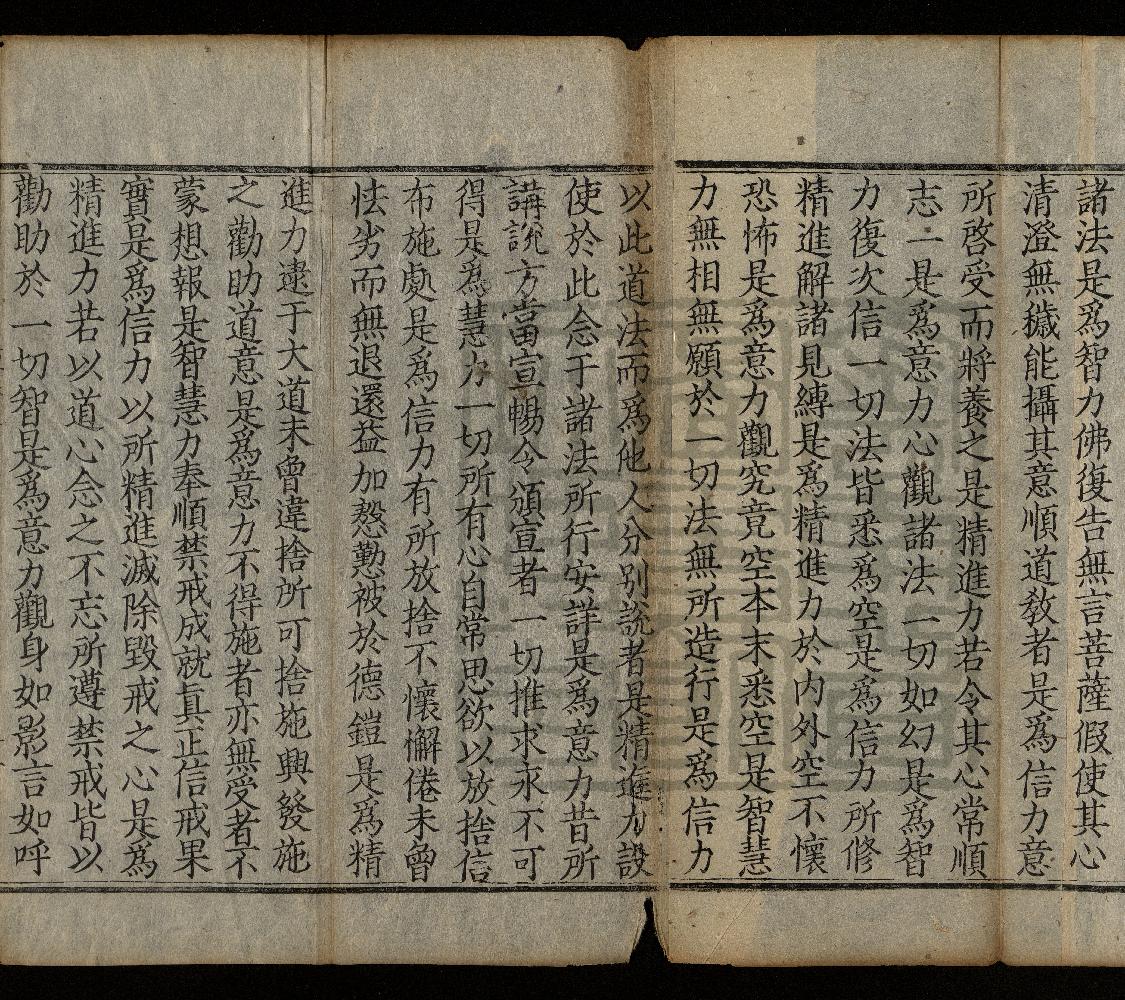 諸法是爲智力佛復告無言菩薩假使其心
清澄無穢能攝其意順道教者是爲信力意
所啓受而將養之是精進力若令其心常順
志一是爲意力心觀諸法一切如幻是爲智
力復次信一切法皆悉爲空是爲信力所修
精進解諸見縛是爲精進力於內外空不懷
恐怖是爲意力觀究竟空本末悉空是智慧
力無相無願於一切法無所造行是爲信力
以此道法而爲他人分別說者是精進力設
使於此念于諸法所行安詳是爲意力昔所
講說方當宣暢令頒宣者一切推求永不可
得是爲慧力一切所有心自常思欲以放捨信
布施處是爲信力有所放捨不懷懈倦未曾
怯劣而無退還益加慇懃被於德鎧是爲精
進力逮于大道未曾違捨所可捨施興發施
之勸助道意是爲意力不得施者亦無受者不
蒙想報是智慧力奉順禁戒成就真正信戒果
實是爲信力以所精進滅除毀戒之心是爲
精進力若以道心念之不忘所遵禁戒皆以
勸助於一切智是爲意力觀身如影言如呼